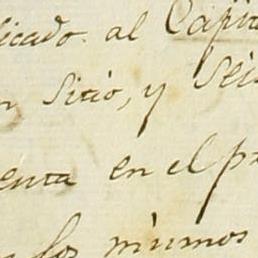 icado al Capi
n Sitio, y Seis
enta en el pr
los mismos